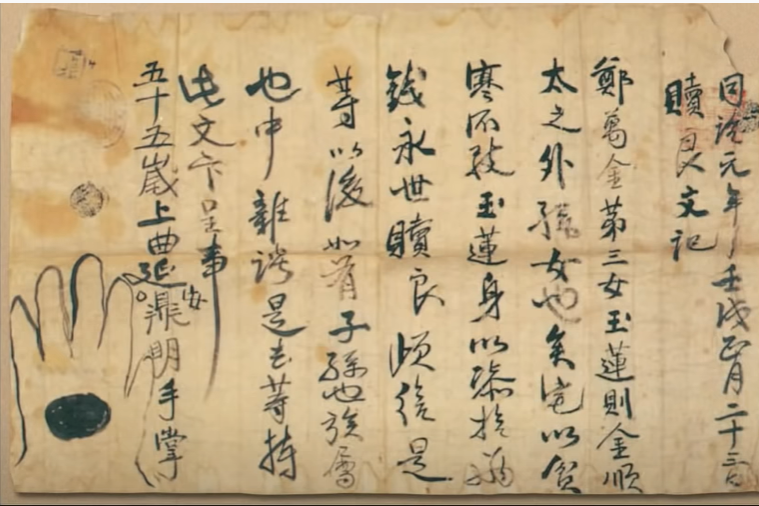 同治元年壬戌正月二十二日
贖良文記
鄭萬金第三女玉蓮則金順
太之外孫女也矣宅以貧
寒不玉蓮身以拾
錢永世贖良 給是
等以後如有子孫也族屬
也中雜談是去等持
此文卞呈事
五十五歲上典 鼎明手掌